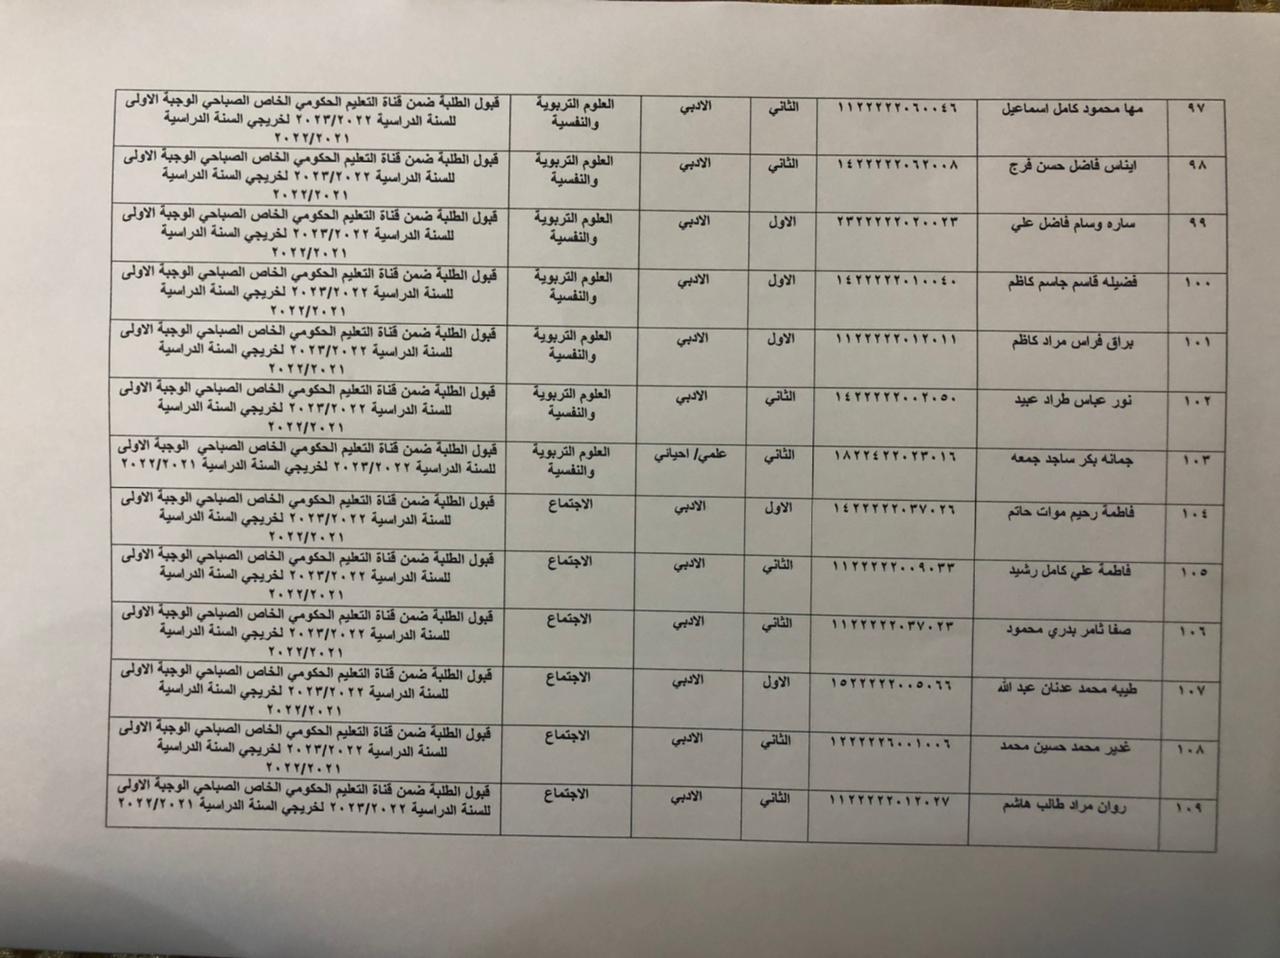 ٩٧ مها محمود كامل اسماعيل ١١٢٢٢٢٢٠٦٠٠٤٦ الثاني الادبي العلوم التربوية والنفسية قبول الطلبة ضمن قناة التعليم الحكومي الخاص الصباحي الوجبة الاولى
للسنة الدراسية ٢٠٢٣/٢٠٢٢ لخريجي السنة الدراسية
٢٠٢٢/٢٠٢١
٩٨ ايناس فاضل حسن فرج ١٤٢٢٢٢٢٠٦٢٠٠٨ الثاني الادبي العلوم التربوية والنفسية قبول الطلبة ضمن قناة التعليم الحكومي الخاص الصباحي الوجبة الاولى
للسنة الدراسية ٢٠٢٣/٢٠٢٢ لخريجي السنة الدراسية
٢٠٢٢/٢٠٢١
٩٩ ساره وسام فاضل علي ٢٣٢٢٢٢٢٠٢٠٠٢٣ الاول الادبي العلوم التربوية والنفسية قبول الطلبة ضمن قناة التعليم الحكومي الخاص الصباحي الوجبة الاولى
للسنة الدراسية ٢٠٢٣/٢٠٢٢ لخريجي السنة الدراسية
٢٠٢٢/٢٠٢١
١٠٠ فضيله قاسم جاسم كاظم ١٤٢٢٢٢٢٠١٠٠٤٠ الاول الادبي العلوم التربوية والنفسية قبول الطلبة ضمن قناة التعليم الحكومي الخاص الصباحي الوجبة الاولى
للسنة الدراسية ٢٠٢٣/٢٠٢٢ لخريجي السنة الدراسية
٢٠٢٢/٢٠٢١
١٠١ براق فراس مراد كاظم ١١٢٢٢٢٢٠١٢٠١١ الاول الادبي العلوم التربوية والنفسية قبول الطلبة ضمن قناة التعليم الحكومي الخاص الصباحي الوجبة الاولى
للسنة الدراسية ٢٠٢٣/٢٠٢٢ لخريجي السنة الدراسية
٢٠٢٢/٢٠٢١
١٠٢ نور عباس طراد عبيد ١٤٢٢٢٢٢٠٠٢٠٥٠ الثاني الادبي العلوم التربوية والنفسية قبول الطلبة ضمن قناة التعليم الحكومي الخاص الصباحي الوجبة الاولى
للسنة الدراسية ٢٠٢٣/٢٠٢٢ لخريجي السنة الدراسية
٢٠٢٢/٢٠٢١
١٠٣ جمانه بكر ساجد جمعه ١٨٢٢٤٢٢٠٢٣٠١٦ الثاني علمي/ احيائي العلوم التربوية والنفسية قبول الطلبة ضمن قناة التعليم الحكومي الخاص الصباحي الوجبة الاولى
للسنة الدراسية ٢٠٢٣/٢٠٢٢ لخريجي السنة الدراسية ٢٠٢٢/٢٠٢١
١٠٤ فاطمة رحيم موات حاتم ١٤٢٢٢٢٢٠٣٧٠٢٦ الاول الادبي الاجتماع قبول الطلبة ضمن قناة التعليم الحكومي الخاص الصباحي الوجبة الاولى
للسنة الدراسية ٢٠٢٣/٢٠٢٢ لخريجي السنة الدراسية
٢٠٢٢/٢٠٢١
١٠٥ فاطمة علي كامل رشيد ١١٢٢٢٢٢٠٠٩٠٣٣ الثاني الادبي الاجتماع قبول الطلبة ضمن قناة التعليم الحكومي الخاص الصباحي الوجبة الاولى
للسنة الدراسية ٢٠٢٣/٢٠٢٢ لخريجي السنة الدراسية
٢٠٢٢/٢٠٢١
١٠٦ صفا ثامر بدري محمود ١١٢٢٢٢٢٠٣٧٠٢٣ الثاني الادبي الاجتماع قبول الطلبة ضمن قناة التعليم الحكومي الخاص الصباحي الوجبة الاولى
للسنة الدراسية ٢٠٢٣/٢٠٢٢ لخريجي السنة الدراسية
٢٠٢٢/٢٠٢١
١٠٧ طيبه محمد عدنان عبد الله ١٥٢٢٢٢٢٠٠٥٠٦٦ الاول الادبي الاجتماع قبول الطلبة ضمن قناة التعليم الحكومي الخاص الصباحي الوجبة الاولى
للسنة الدراسية ٢٠٢٣/٢٠٢٢ لخريجي السنة الدراسية
٢٠٢٢/٢٠٢١
١٠٨ غدير محمد حسين محمد ١٢٢٢٢٢٦٠٠١٠٠٦ الثاني الادبي الاجتماع قبول الطلبة ضمن قناة التعليم الحكومي الخاص الصباحي الوجبة الاولى
للسنة الدراسية ٢٠٢٣/٢٠٢٢ لخريجي السنة الدراسية
٢٠٢٢/٢٠٢١
١٠٩ روان مراد طالب هاشم ١١٢٢٢٢٢٠١٢٠٢٧ الثاني الادبي الاجتماع قبول الطلبة ضمن قناة التعليم الحكومي الخاص الصباحي الوجبة الاولى
للسنة الدراسية ٢٠٢٣/٢٠٢٢ لخريجي السنة الدراسية ٢٠٢٢/٢٠٢١